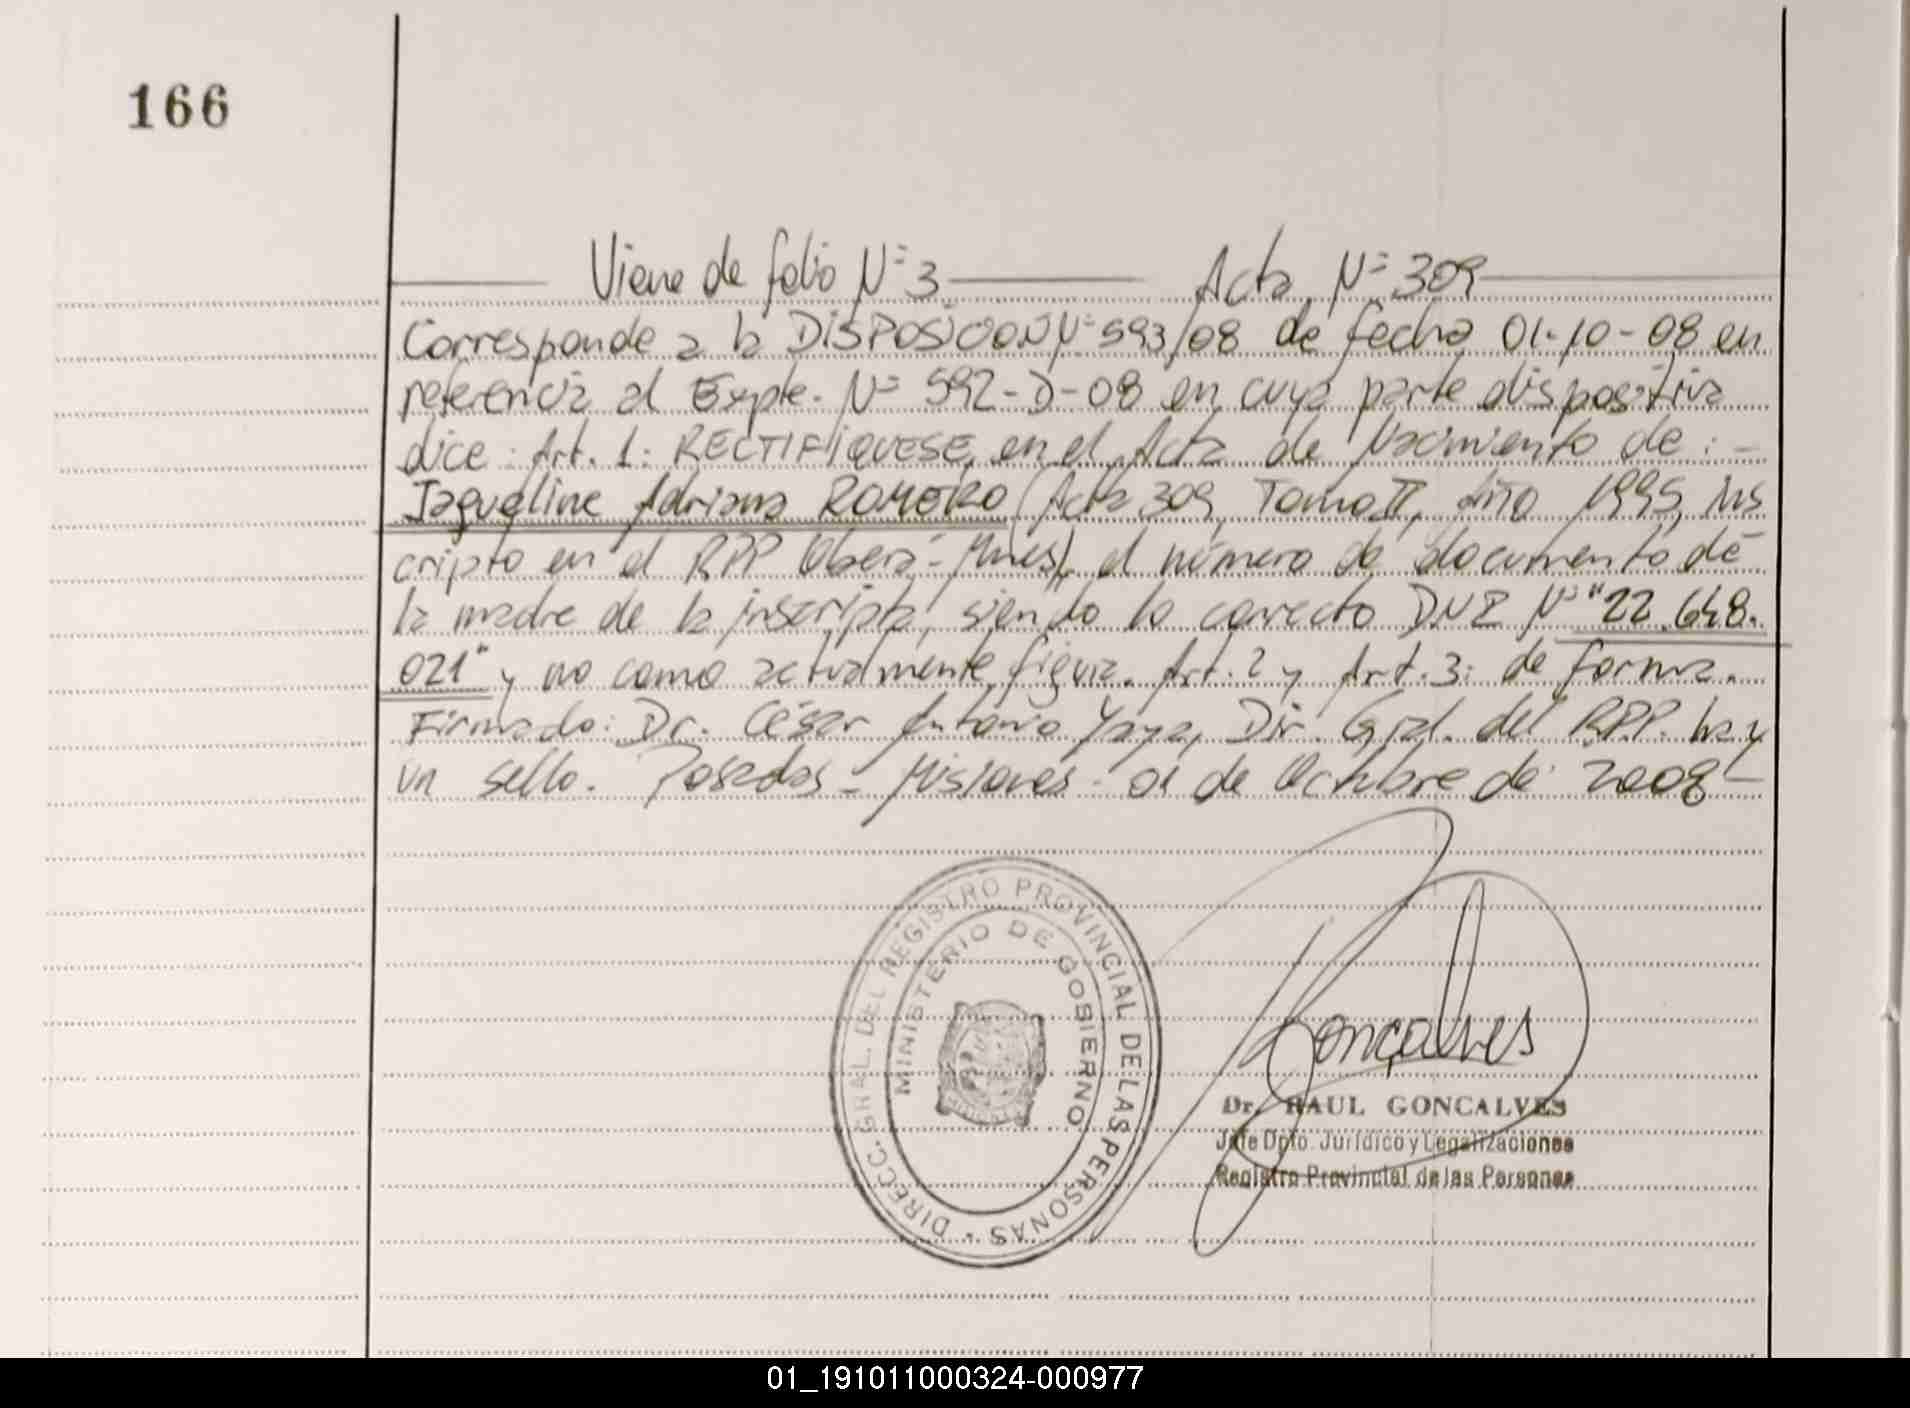 166
Viene de folio Nº 3 Acta Nº 309
Corresponde a la DISPOSICION Nº 593/08 de fecha 01-10-08 en
referencia al Expte. Nº 592-D-08 en cuya parte dispositiva
dice: Art. 1: RECTIFIQUESE en el Acta de Nacimiento de: -
Jaqueline Adriana ROMERO (Acta 309, Tomo II, Año 1995, Ins
cripto en el RPP Oberá - Mnes), el número de documento de
la madre de la inscripta, siendo lo correcto DNI Nº "22.648.
021" y no como actualmente figura. Art. 2 y Art. 3: de forma.
Firmado: Dr. César Antonio Yaya, Dir. Gral. del RPP. hay
un sello. Posadas - Misiones - 01 de Octubre de 2008 -
DIRECC. GRAL. DEL REGISTRO PROVINCIAL DE LAS PERSONAS
MINISTERIO DE GOBIERNO
Gonçalves
Dr. RAUL GONCALVES
Jefe Dpto. Jurídico y Legalizaciones
Registro Provincial de las Personas
01_191011000324-000977